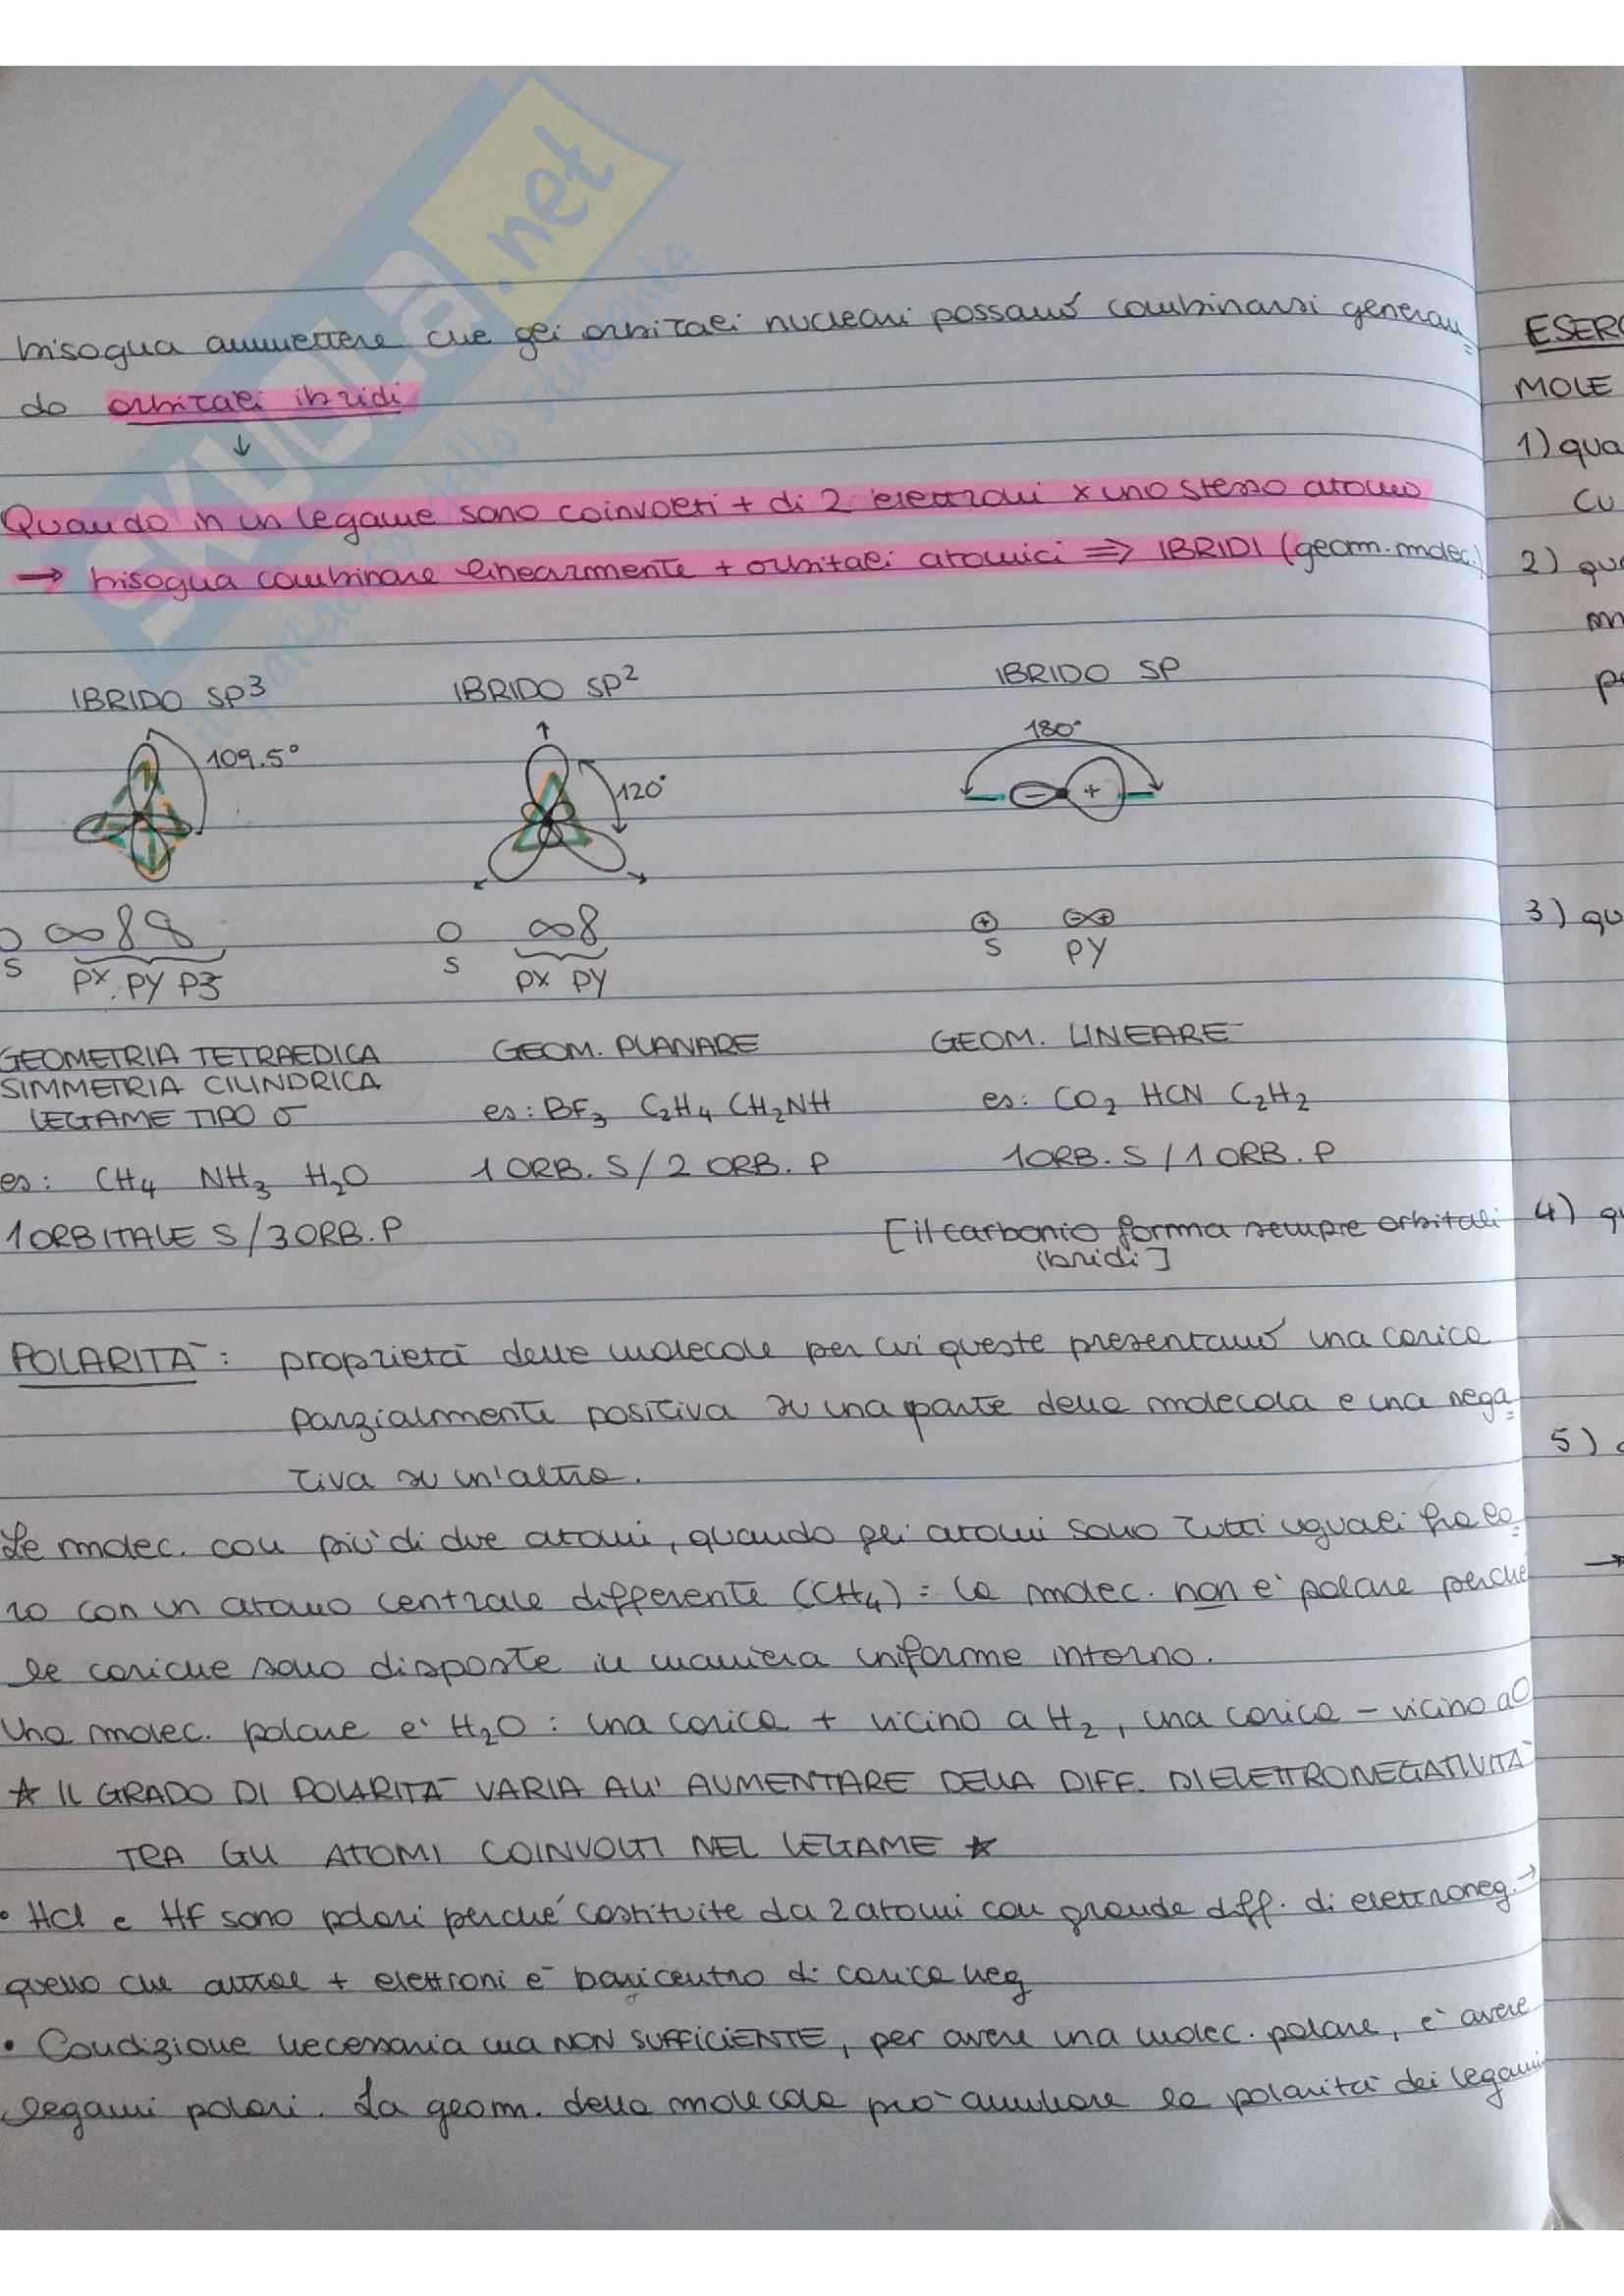 bisogna ammettere che gli orbitali nucleari possano combinarsi generan=
do orbitali ibridi
↓
Quando in un legame sono coinvolti + di 2 elettroni x uno stesso atomo
→ bisogna combinare linearmente + orbitali atomici ⇒ IBRIDI (geom. molec.)
IBRIDO SP³ IBRIDO SP² IBRIDO SP
109.5° 120° 180°
- +
S PX PY PZ S PX PY + S - + PY
GEOMETRIA TETRAEDICA GEOM. PLANARE GEOM. LINEARE
SIMMETRIA CILINDRICA
LEGAME TIPO σ es: BF₃ C₂H₄ CH₂NH es: CO₂ HCN C₂H₂
es: CH₄ NH₃ H₂O 1 ORB. S / 2 ORB. P 1 ORB. S / 1 ORB. P
1 ORBITALE S / 3 ORB. P [il carbonio forma sempre orbitali
ibridi]
POLARITÀ: proprietà delle molecole per cui queste presentano una carica
parzialmente positiva su una parte della molecola e una nega=
tiva su un'altra.
Le molec. con più di due atomi, quando gli atomi sono tutti uguali fra lo=
ro con un atomo centrale differente (CH₄) = la molec. non è polare perché
le cariche sono disposte in maniera uniforme intorno.
Una molec. polare è H₂O : una carica + vicino a H₂, una carica - vicino a O
★ IL GRADO DI POLARITÀ VARIA ALL' AUMENTARE DELLA DIFF. DI ELETTRONEGATIVITÀ
TRA GLI ATOMI COINVOLTI NEL LEGAME ★
• HCl e HF sono polari perché costituite da 2 atomi con grande diff. di elettroneg. →
quello che attrae + elettroni è baricentro di carica neg
• Condizione necessaria ma NON SUFFICIENTE, per avere una molec. polare, è avere
legami polari. La geom. della molecola può annullare la polarità dei legami
ESER
MOLE
1) qua
Cu
2) qu
3) qu
4) q
5)
→
SKUOLA.net